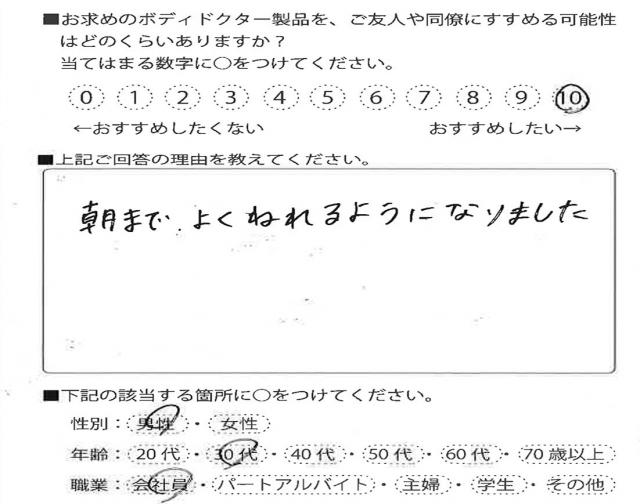 ■お求めのボディドクター製品を、ご友人や同僚にすすめる可能性
はどのくらいありますか？
当てはまる数字に○をつけてください。
0 1 2 3 4 5 6 7 8 9 10
←おすすめしたくない おすすめしたい→
■上記ご回答の理由を教えてください。
朝まで よくねれるようになりました
■下記の該当する箇所に○をつけてください。
性別：男性・女性
年齢：20代・30代・40代・50代・60代・70歳以上
職業：会社員・パートアルバイト・主婦・学生・その他